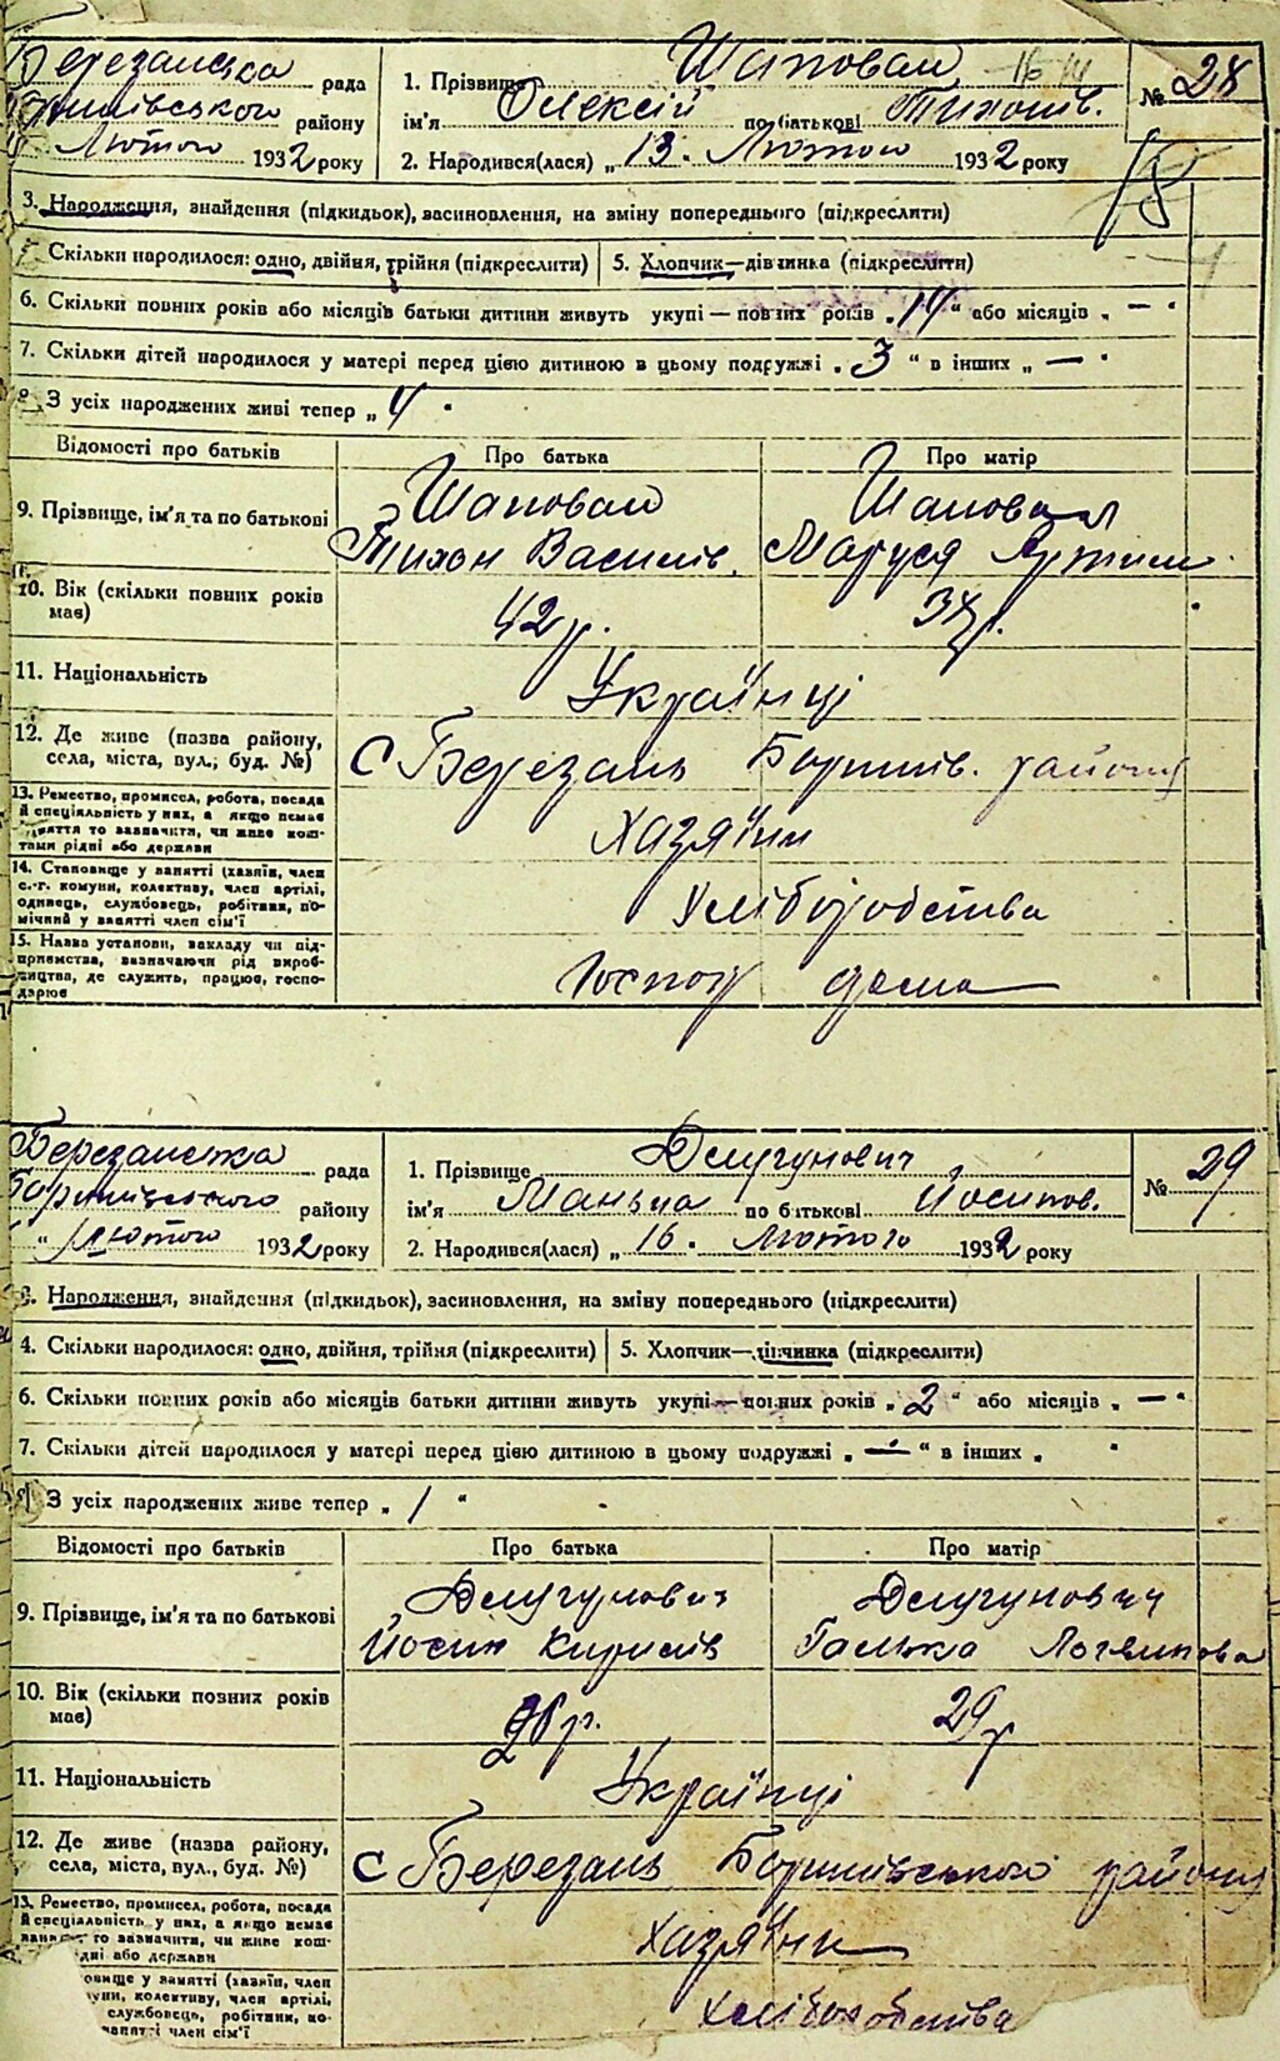 Березанська рада
району
Лютого 1932 року
1. Прізвище Шаповал
ім'я Олексій по батькові Тихонів.
2. Народився(лася) „13. Лютого 1932 року
№ 28
18
3. Народження, знайдення (підкидьок), засиновлення, на зміну попереднього (підкреслити)
Скільки народилося: одно, двійня, трійня (підкреслити) 5. Хлопчик—дівчинка (підкреслити)
6. Скільки повних років або місяців батьки дитини живуть укупі — повних років „14“ або місяців „—“
7. Скільки дітей народилося у матері перед цією дитиною в цьому подружжі „3“ в інших „—“
8. З усіх народжених живі тепер „4“
Відомості про батьків Про батька Про матір
9. Прізвище, ім'я та по батькові
Шаповал Шаповал
Тихон Василів. Маруся Артем
10. Вік (скільки повних років має)
42 р.
11. Національність Українці
12. Де живе (назва району,
села, міста, вул., буд. №) С Березань Боришів. району
13. Ремество, промисел, робота, посада
й спеціяльність у них, а якщо немає
заняття то зазначити, чи живе кош-
тами рідні або держави
Хазяїни
14. Становище у занятті (хазяїн, член
с.-г. комуни, колективу, член артілі,
одинець, службовець, робітник, по-
мічний у занятті член сім'ї
Хліборобства
15. Назва установи, закладу чи під-
приємства, зазначаючи рід вироб-
ництва, де служить, працює, госпо-
дарює
Господ дома
Березанська рада
району
Лютого 1932 року
1. Прізвище Длугунович
ім'я Манька по батькові Йосипов.
2. Народився(лася) „16. Лютого 1932 року
№ 29
3. Народження, знайдення (підкидьок), засиновлення, на зміну попереднього (підкреслити)
4. Скільки народилося: одно, двійня, трійня (підкреслити) 5. Хлопчик—дівчинка (підкреслити)
6. Скільки повних років або місяців батьки дитини живуть укупі — повних років „2“ або місяців „—“
7. Скільки дітей народилося у матері перед цією дитиною в цьому подружжі „—“ в інших „ “
8. З усіх народжених живе тепер „1“
Відомості про батьків Про батька Про матір
9. Прізвище, ім'я та по батькові
Длугунович Длугунович
Йосип Кирилів Галька
10. Вік (скільки повних років має)
29 р
11. Національність Українці
12. Де живе (назва району,
села, міста, вул., буд. №) С Березань Боришівського району
13. Ремество, промисел, робота, посада
й спеціяльність у них, а якщо немає
то зазначити, чи живе кош-
дні або держави
Хазяїни
овище у занятті (хазяїн, член
уни, колективу, член артілі,
службовець, робітник, по-
занятті член сім'ї
Хліборобства